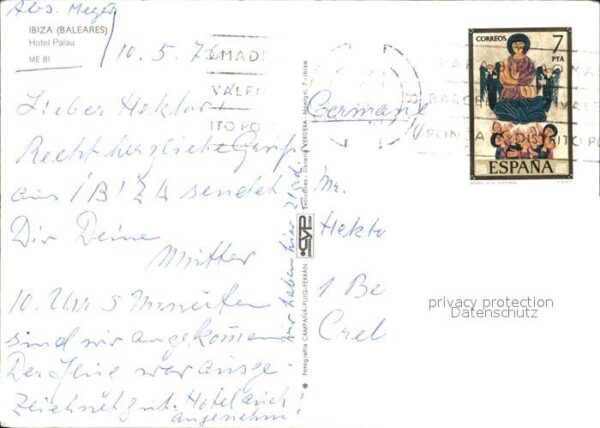 Abs. Meyer
IBIZA (BALEARES)
Hotel Palau
ME 81
10. 5. 76
MADR
VALEN
ITO PO
Lieber Hektor!
Recht herzliche
aus IBIZA sendet
Dir Deine
Mutter
10. Uhr 5 Minuten
sind wir angekommen
Der Flug war ausge-
zeichnet gut. Hotel auch
angenehm!
wir haben hier 21 Grd.
Fotografía CAMPAÑA-PUIG-FERRÁN
CYP
Exclusivas Librería VERDERA - Ibiza
Germany
Mr.
Hekto
1 Be
Cref
CORREOS
7
PTA
ESPAÑA
BARCE
VALE
DISTRITO PO
privacy protection
Datenschutz